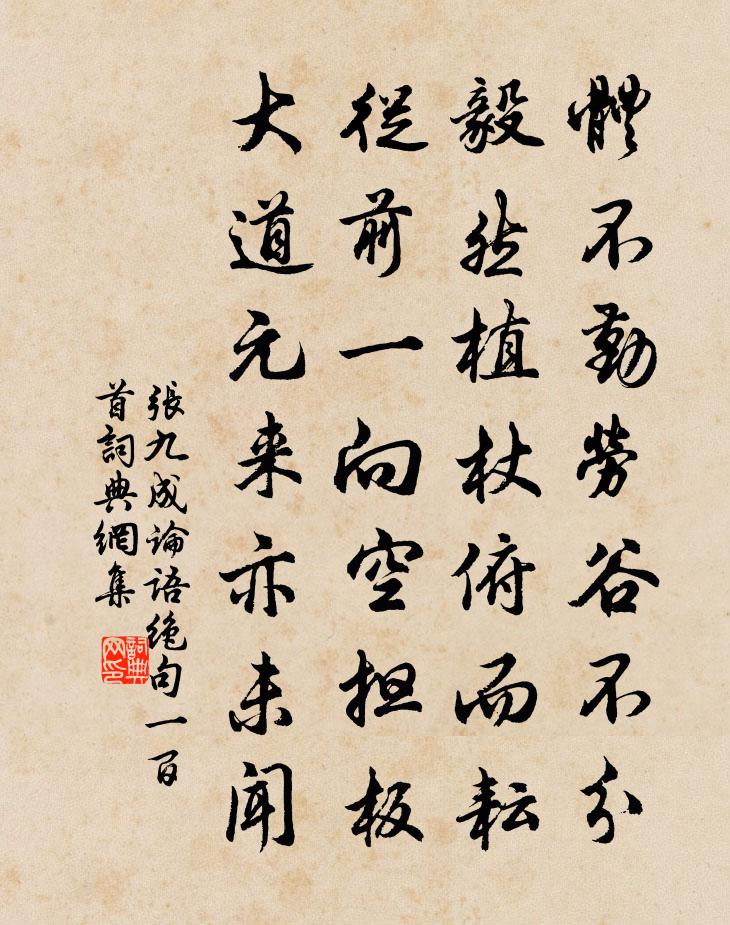 體不勤勞谷不分
毅然植杖俯而耘
從前一向空担板
大道元来亦未聞
張九成論語絶句一百
首詞典網集
詞典网印